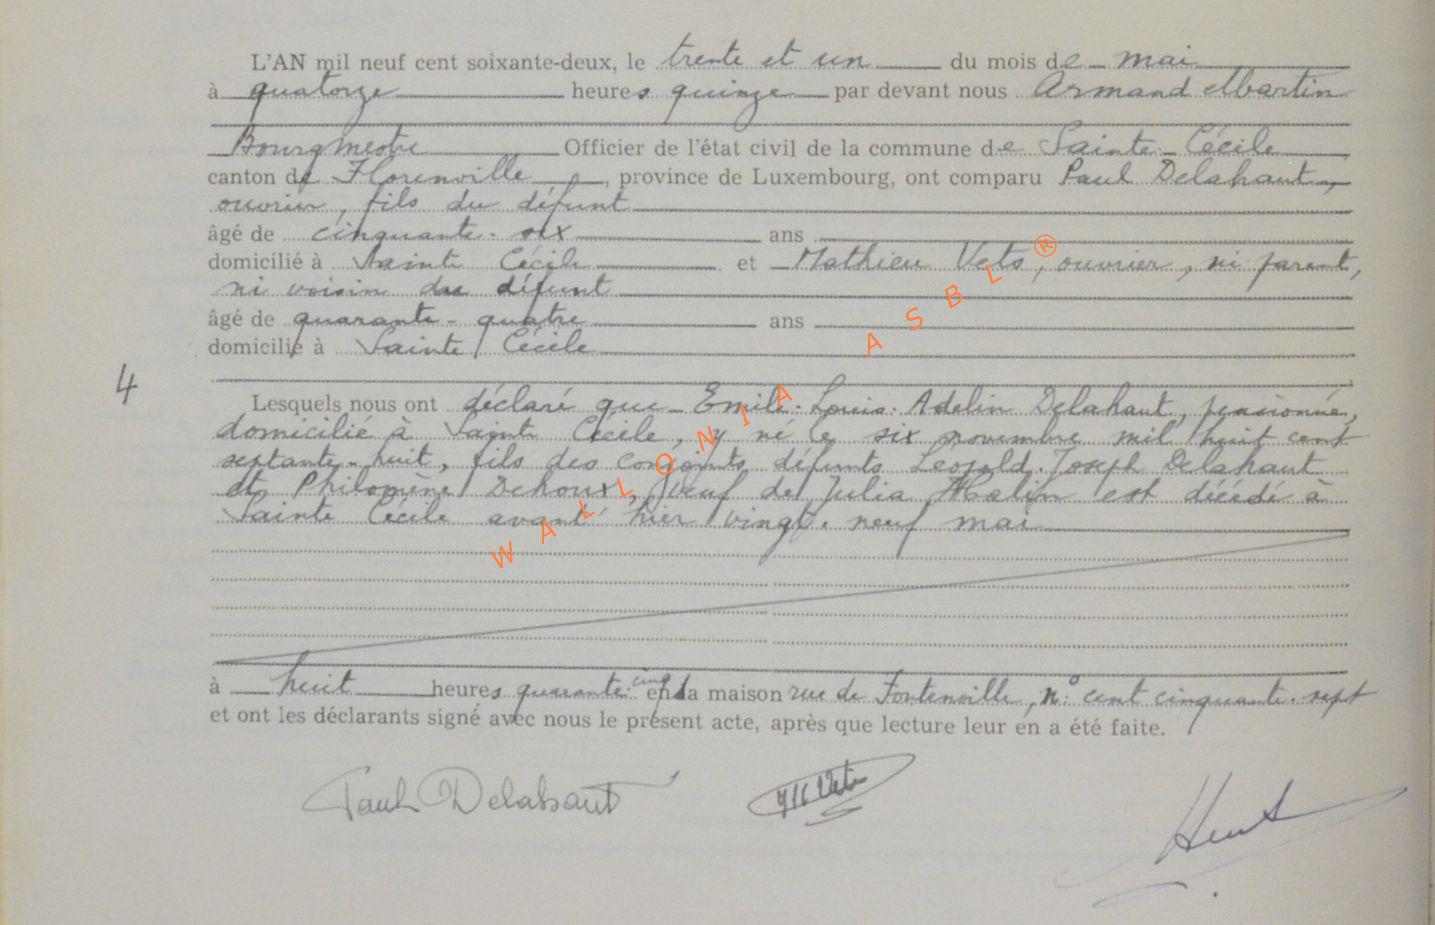 L'AN mil neuf cent soixante-deux, le trente et un du mois de mai
à quatorze heures quinze par devant nous Armand Martin
Bourgmestre Officier de l'état civil de la commune de Sainte-Cécile
canton de Florenville, province de Luxembourg, ont comparu Paul Delahaut,
ouvrier, fils du défunt
âgé de cinquante-six ans
domicilié à Sainte Cécile et Mathieu Vets, ouvrier, ni parent,
ni voisin du défunt
âgé de quarante-quatre ans
domicilié à Sainte Cécile
4
Lesquels nous ont déclaré que Emile-Louis-Adelin Delahaut, pensionné,
domicilié à Sainte Cécile, y né le six novembre mil huit cent
septante-huit, fils des conjoints défunts Léopold-Joseph Delahaut
et Philomène Dehoux, veuf de Julia est décédé à
Sainte Cécile avant hier vingt-neuf mai
à huit heures quarante-cinq en la maison rue de Fontenoille, n° cent cinquante-sept
et ont les déclarants signé avec nous le présent acte, après que lecture leur en a été faite.
Paul Delahaut
WALLONIA ASBL ®